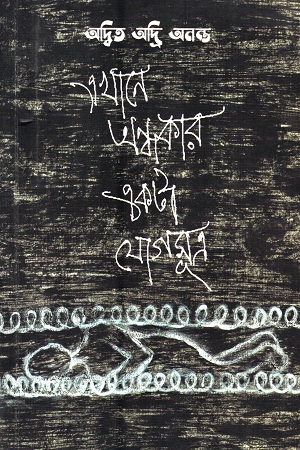 অদ্বিত অদ্রি অনন্ত
এখানে
অন্ধকার
একটা
যোগসূত্র